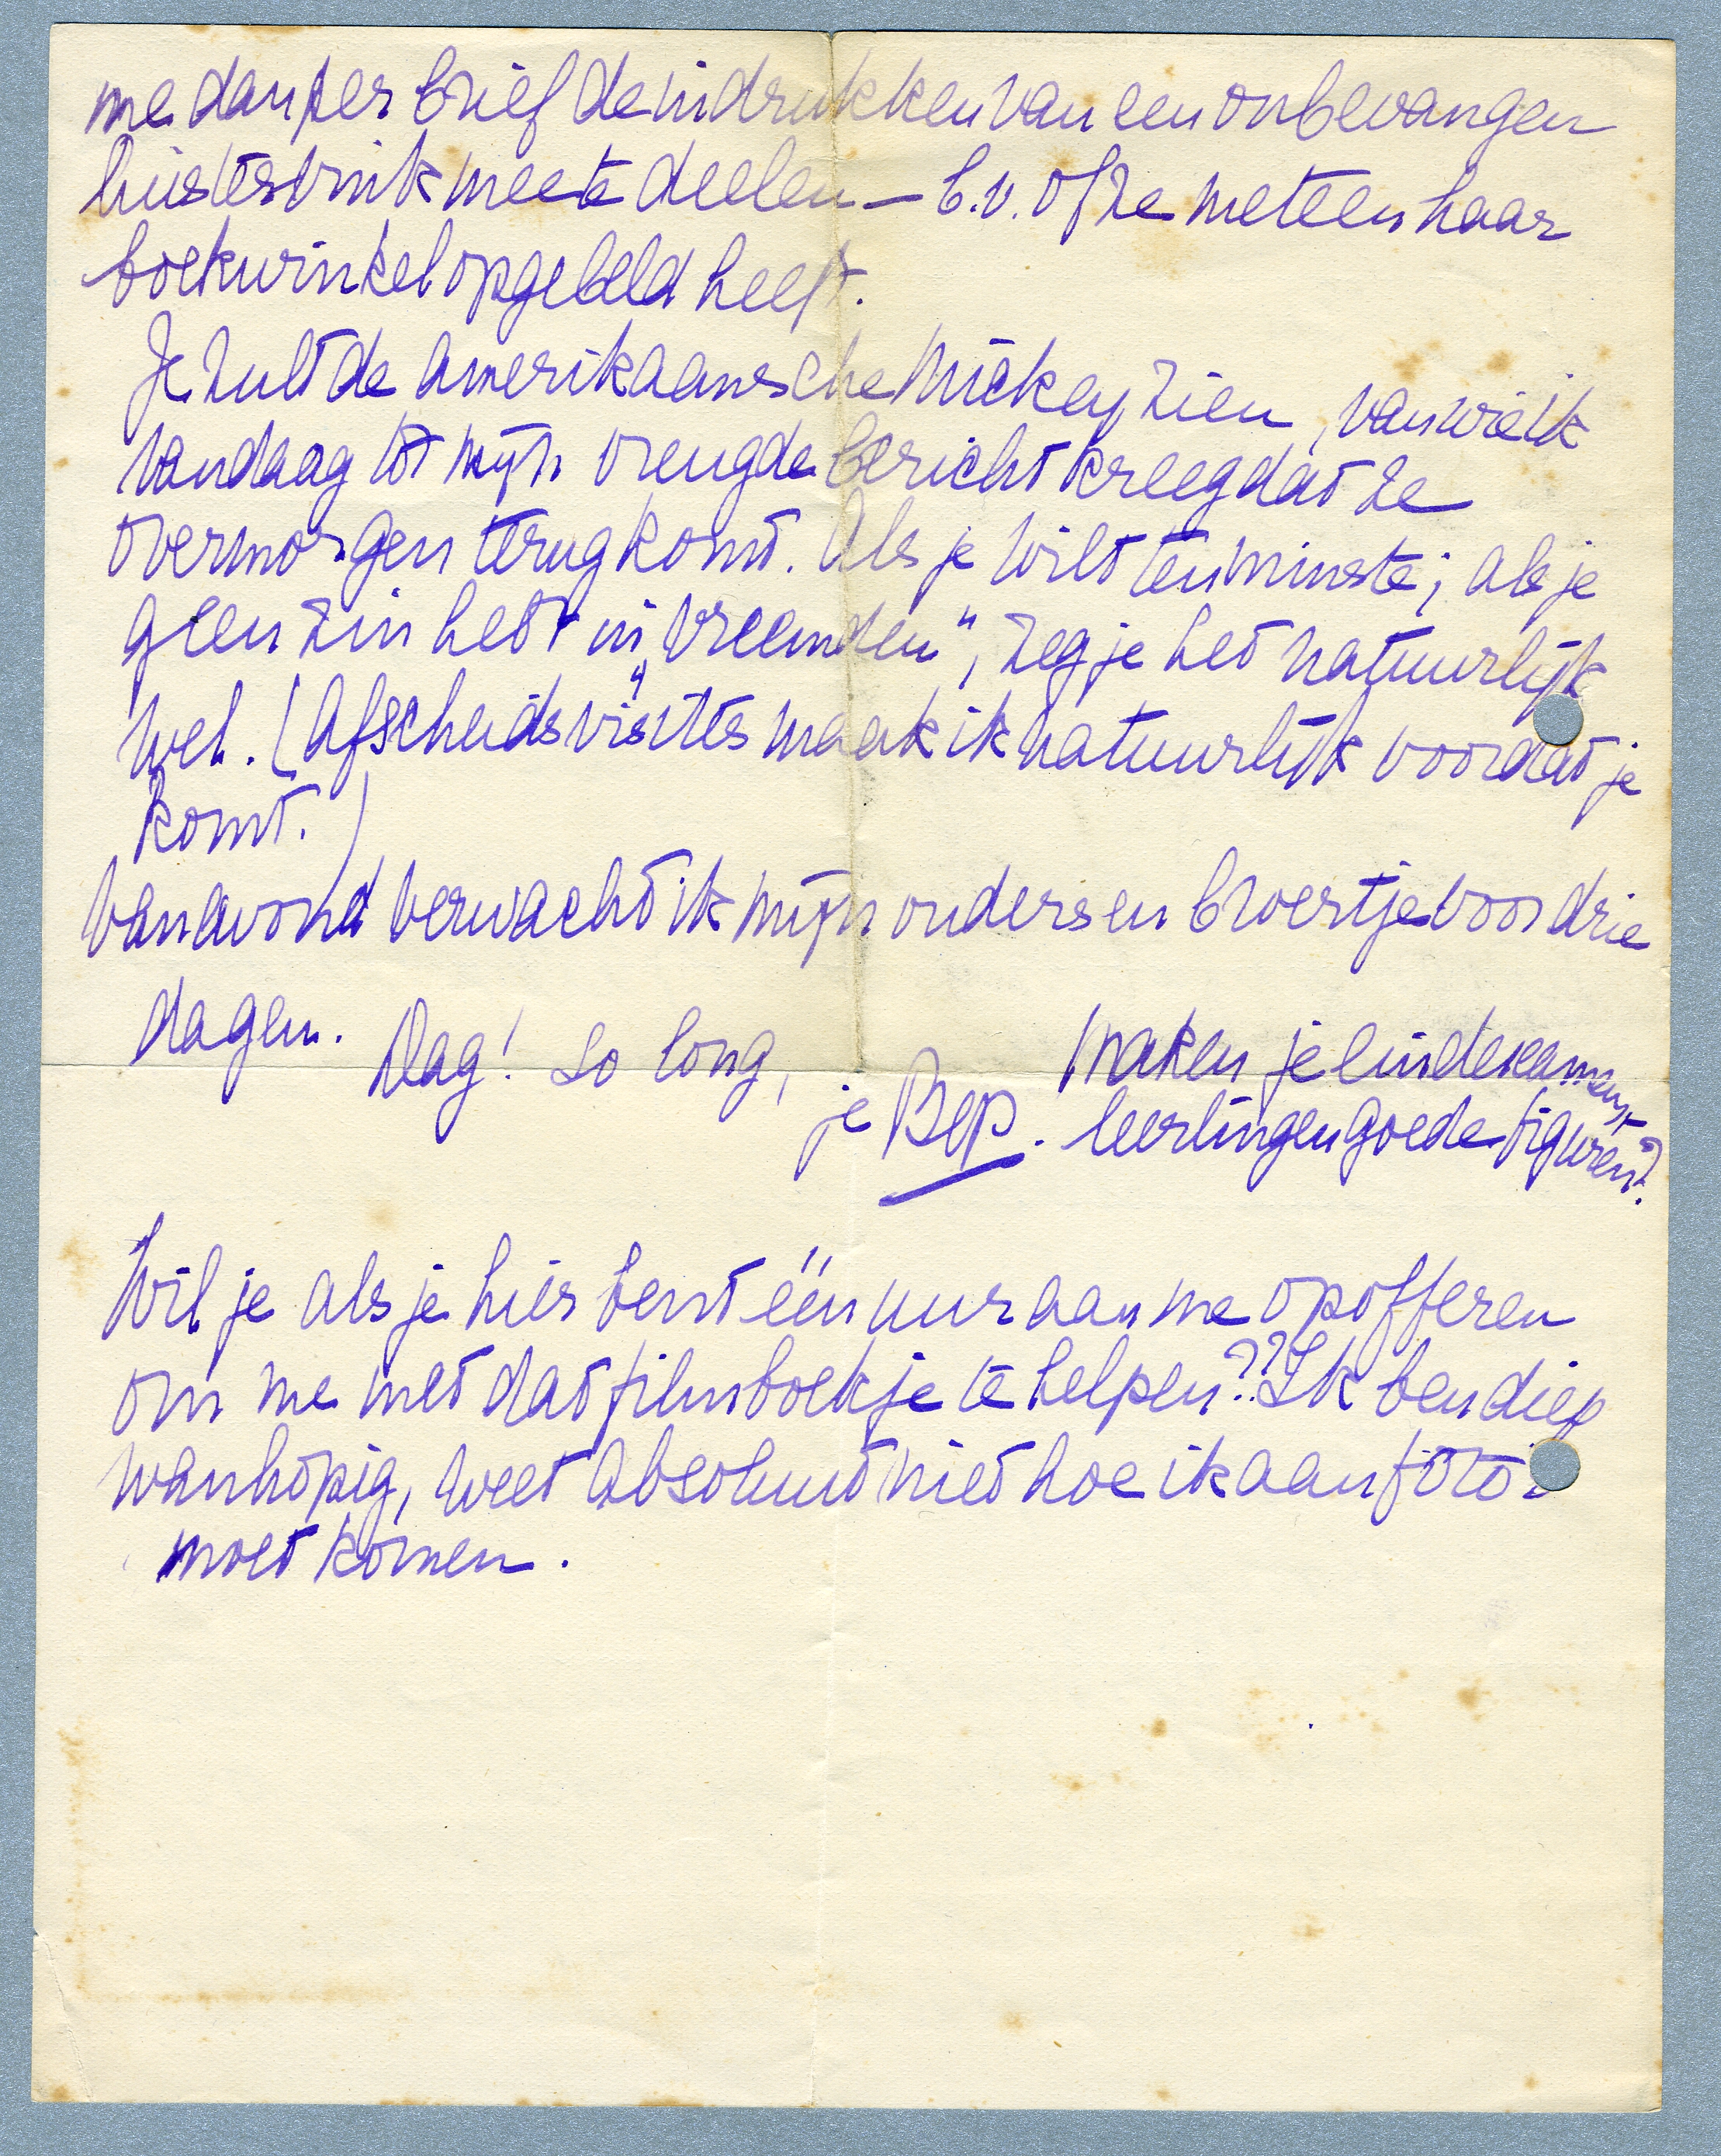 me dan per brief de indrukken van een onbevangen
luistervink mee te deelen — b.v. of ze meteen haar
boekwinkel opgebeld heeft.
Je zult de Amerikaansche Mickey zien, van wie ik
vandaag tot mijn vreugde bericht kreeg dat ze
overmorgen terugkomt. Als je wilt tenminste; als je
geen zin hebt in „vreemden", zeg je het natuurlijk
wel. (Afscheidsvisites maak ik natuurlijk voordat je
komt.)
Vanavond verwacht ik mijn ouders en broertje voor drie
dagen.
Dag! So long,
je Bep.
Maken je eindexamens-
leerlingen goede figuren?
Wil je als je hier bent één uur aan me opofferen
om me met dat filmboekje te helpen?? Ik ben diep
wanhopig, weet absoluut niet hoe ik aan foto's
moet komen.